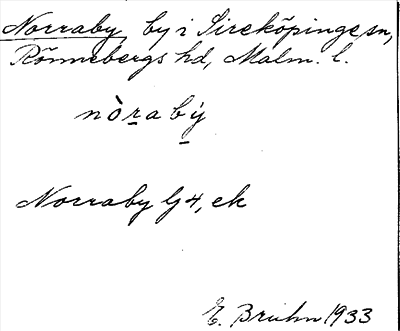 Norraby, by i Sireköpinge sn,
Rönnebergs hd, Malm. l.
nòrabý
Norraby lj 4, ek
E. Bruhn 1933